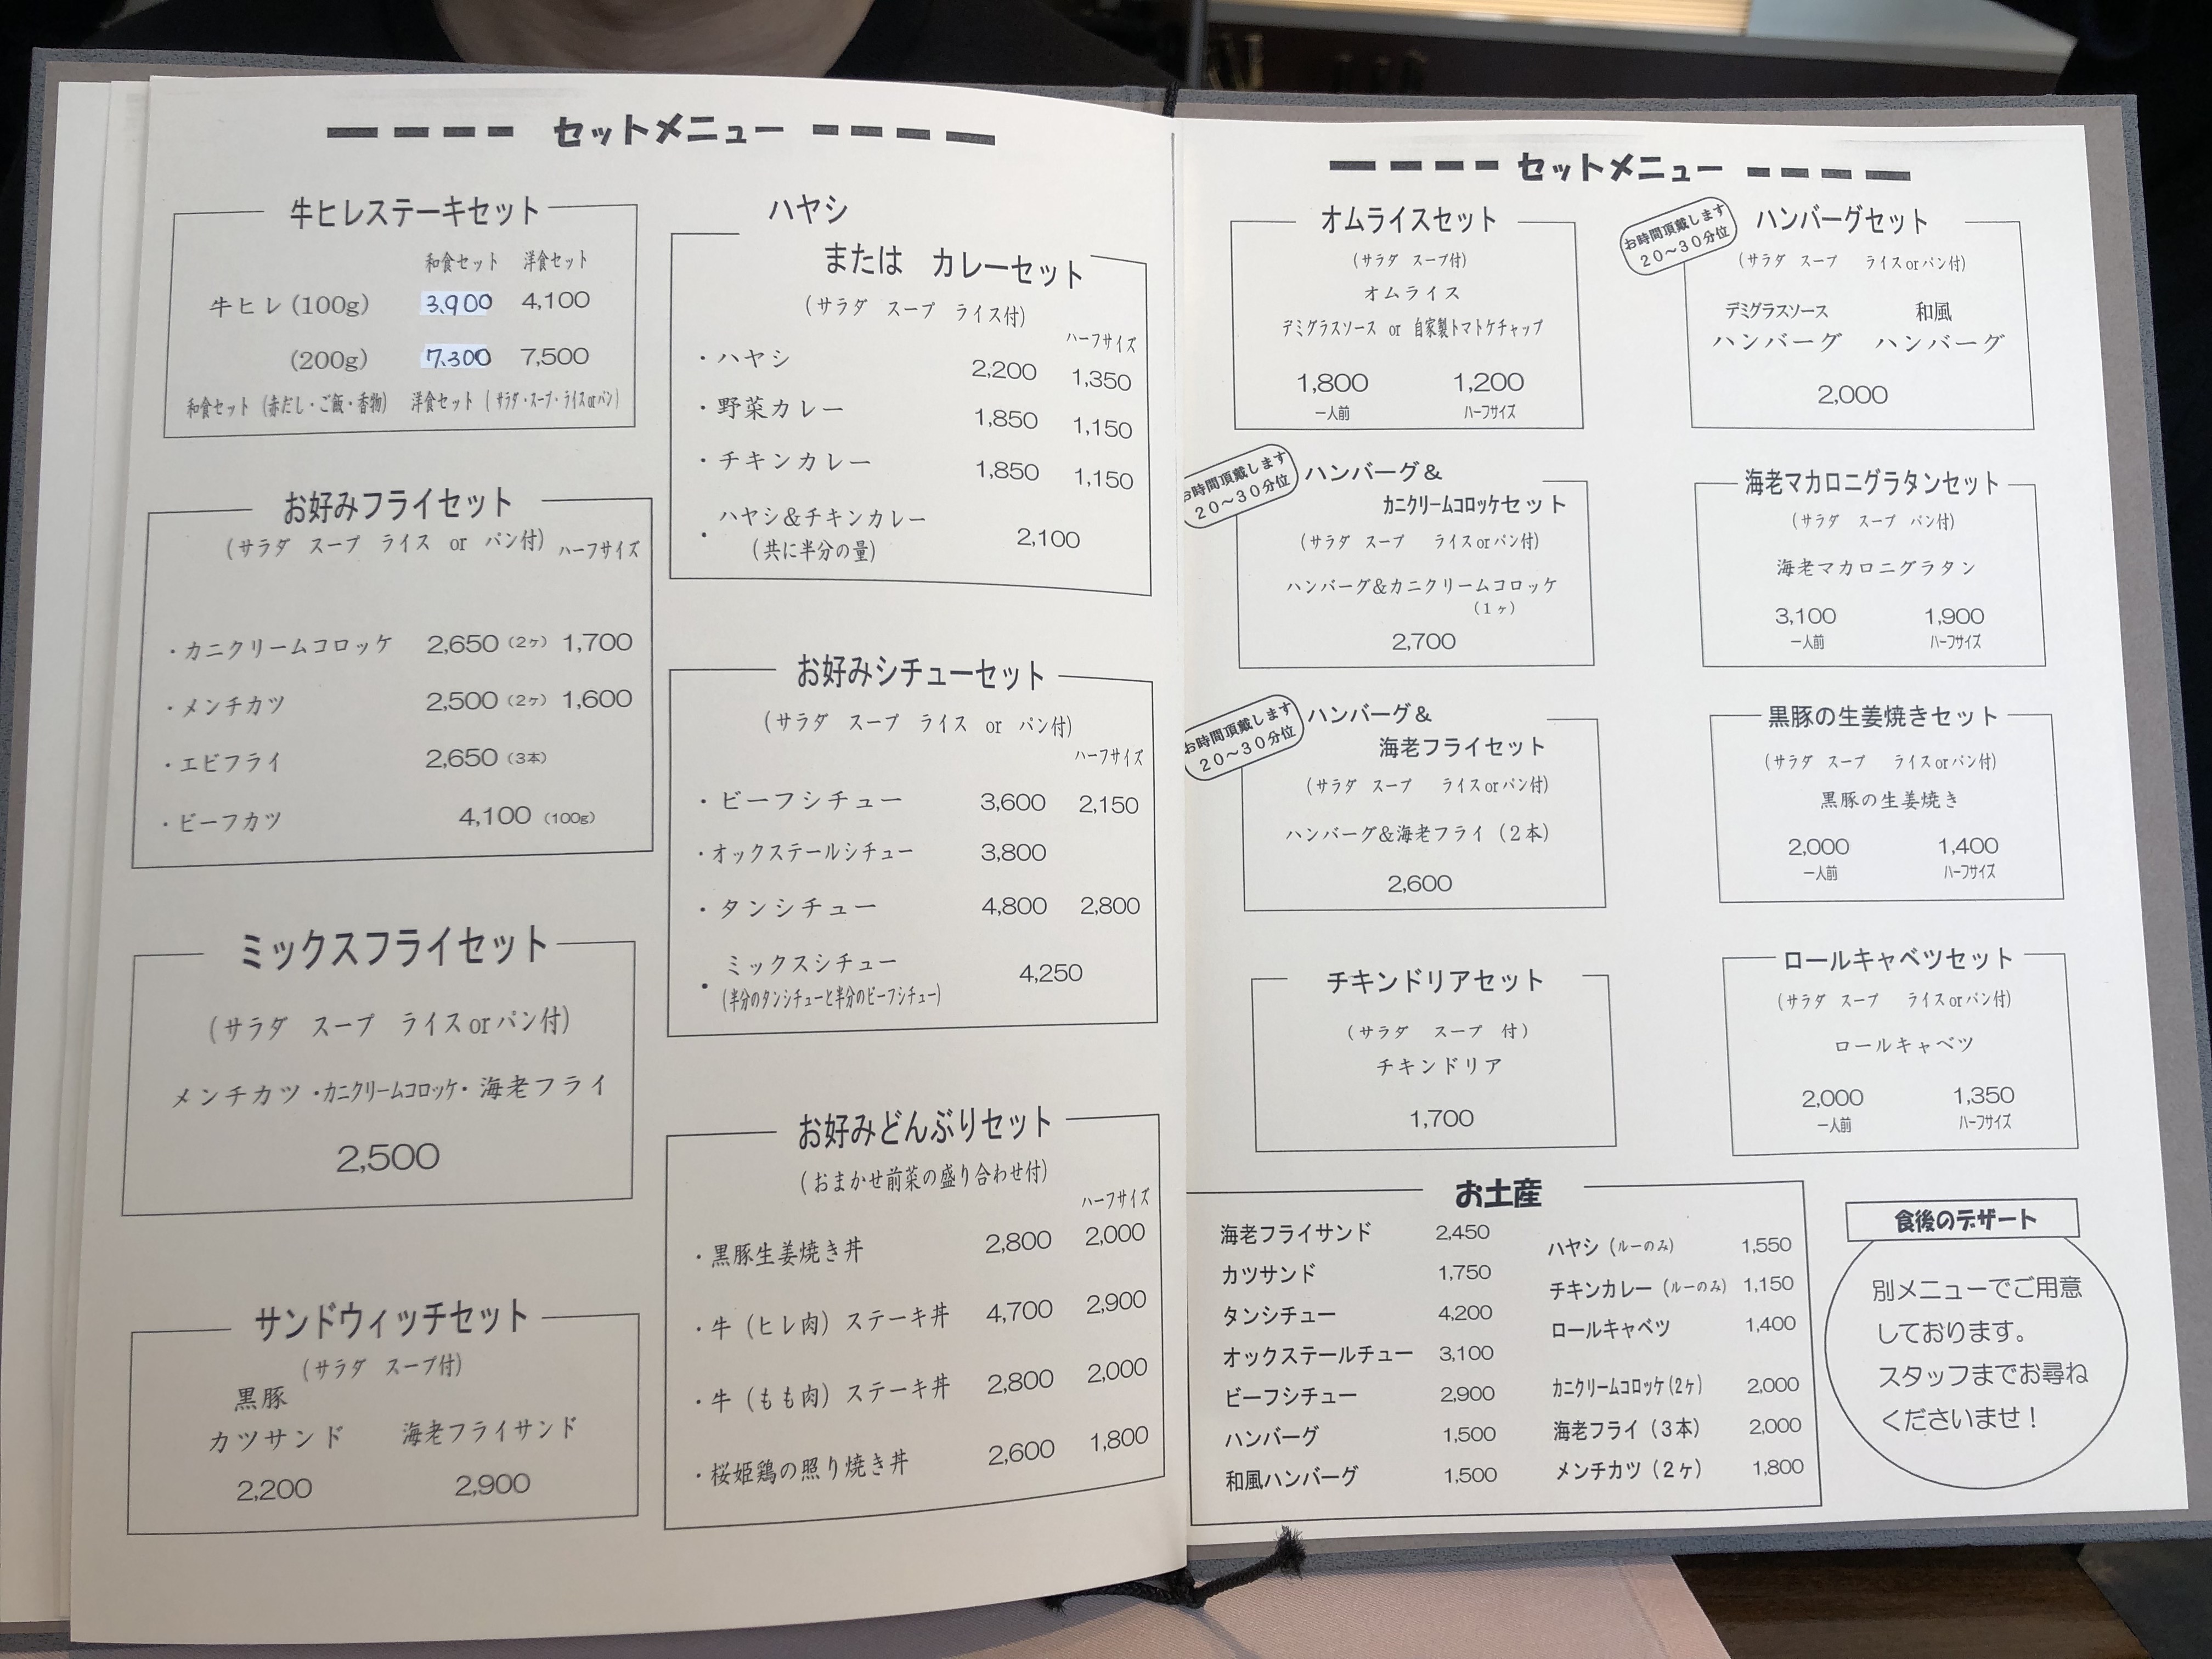 セットメニュー
牛ヒレステーキセット
和食セット 洋食セット
牛ヒレ(100g) 3,900 4,100
(200g) 7,300 7,500
和食セット(赤だし・ご飯・香物) 洋食セット(サラダ・スープ・ライスorパン)
お好みフライセット
(サラダ スープ ライス or パン付) ハーフサイズ
・カニクリームコロッケ 2,650(2ヶ) 1,700
・メンチカツ 2,500(2ヶ) 1,600
・エビフライ 2,650(3本)
・ビーフカツ 4,100(100g)
ミックスフライセット
(サラダ スープ ライスorパン付)
メンチカツ・カニクリームコロッケ・海老フライ
2,500
サンドウィッチセット
(サラダ スープ付)
黒豚
カツサンド 海老フライサンド
2,200 2,900
ハヤシ
または カレーセット
(サラダ スープ ライス付)
ハーフサイズ
・ハヤシ 2,200 1,350
・野菜カレー 1,850 1,150
・チキンカレー 1,850 1,150
・ハヤシ&チキンカレー 2,100
(共に半分の量)
お好みシチューセット
(サラダ スープ ライス or パン付)
ハーフサイズ
・ビーフシチュー 3,600 2,150
・オックステールシチュー 3,800
・タンシチュー 4,800 2,800
・ミックスシチュー 4,250
(半分のタンシチューと半分のビーフシチュー)
お好みどんぶりセット
(おまかせ前菜の盛り合わせ付)
ハーフサイズ
・黒豚生姜焼き丼 2,800 2,000
・牛(ヒレ肉)ステーキ丼 4,700 2,900
・牛(もも肉)ステーキ丼 2,800 2,000
・桜姫鶏の照り焼き丼 2,600 1,800
セットメニュー
オムライスセット
(サラダ スープ付)
オムライス
デミグラスソース or 自家製トマトケチャップ
1,800 1,200
一人前 ハーフサイズ
お時間頂戴します
20〜30分位
ハンバーグセット
(サラダ スープ ライスorパン付)
デミグラスソース 和風
ハンバーグ ハンバーグ
2,000
お時間頂戴します
20〜30分位
ハンバーグ&
カニクリームコロッケセット
(サラダ スープ ライスorパン付)
ハンバーグ&カニクリームコロッケ
(1ヶ)
2,700
海老マカロニグラタンセット
(サラダ スープ パン付)
海老マカロニグラタン
3,100 1,900
一人前 ハーフサイズ
お時間頂戴します
20〜30分位
ハンバーグ&
海老フライセット
(サラダ スープ ライスorパン付)
ハンバーグ&海老フライ(2本)
2,600
黒豚の生姜焼きセット
(サラダ スープ ライスorパン付)
黒豚の生姜焼き
2,000 1,400
一人前 ハーフサイズ
チキンドリアセット
(サラダ スープ 付)
チキンドリア
1,700
ロールキャベツセット
(サラダ スープ ライスorパン付)
ロールキャベツ
2,000 1,350
一人前 ハーフサイズ
お土産
海老フライサンド 2,450
カツサンド 1,750
タンシチュー 4,200
オックステールチュー 3,100
ビーフシチュー 2,900
ハンバーグ 1,500
和風ハンバーグ 1,500
ハヤシ(ルーのみ) 1,550
チキンカレー(ルーのみ) 1,150
ロールキャベツ 1,400
カニクリームコロッケ(2ヶ) 2,000
海老フライ(3本) 2,000
メンチカツ(2ヶ) 1,800
食後のデザート
別メニューでご用意
しております。
スタッフまでお尋ね
くださいませ!